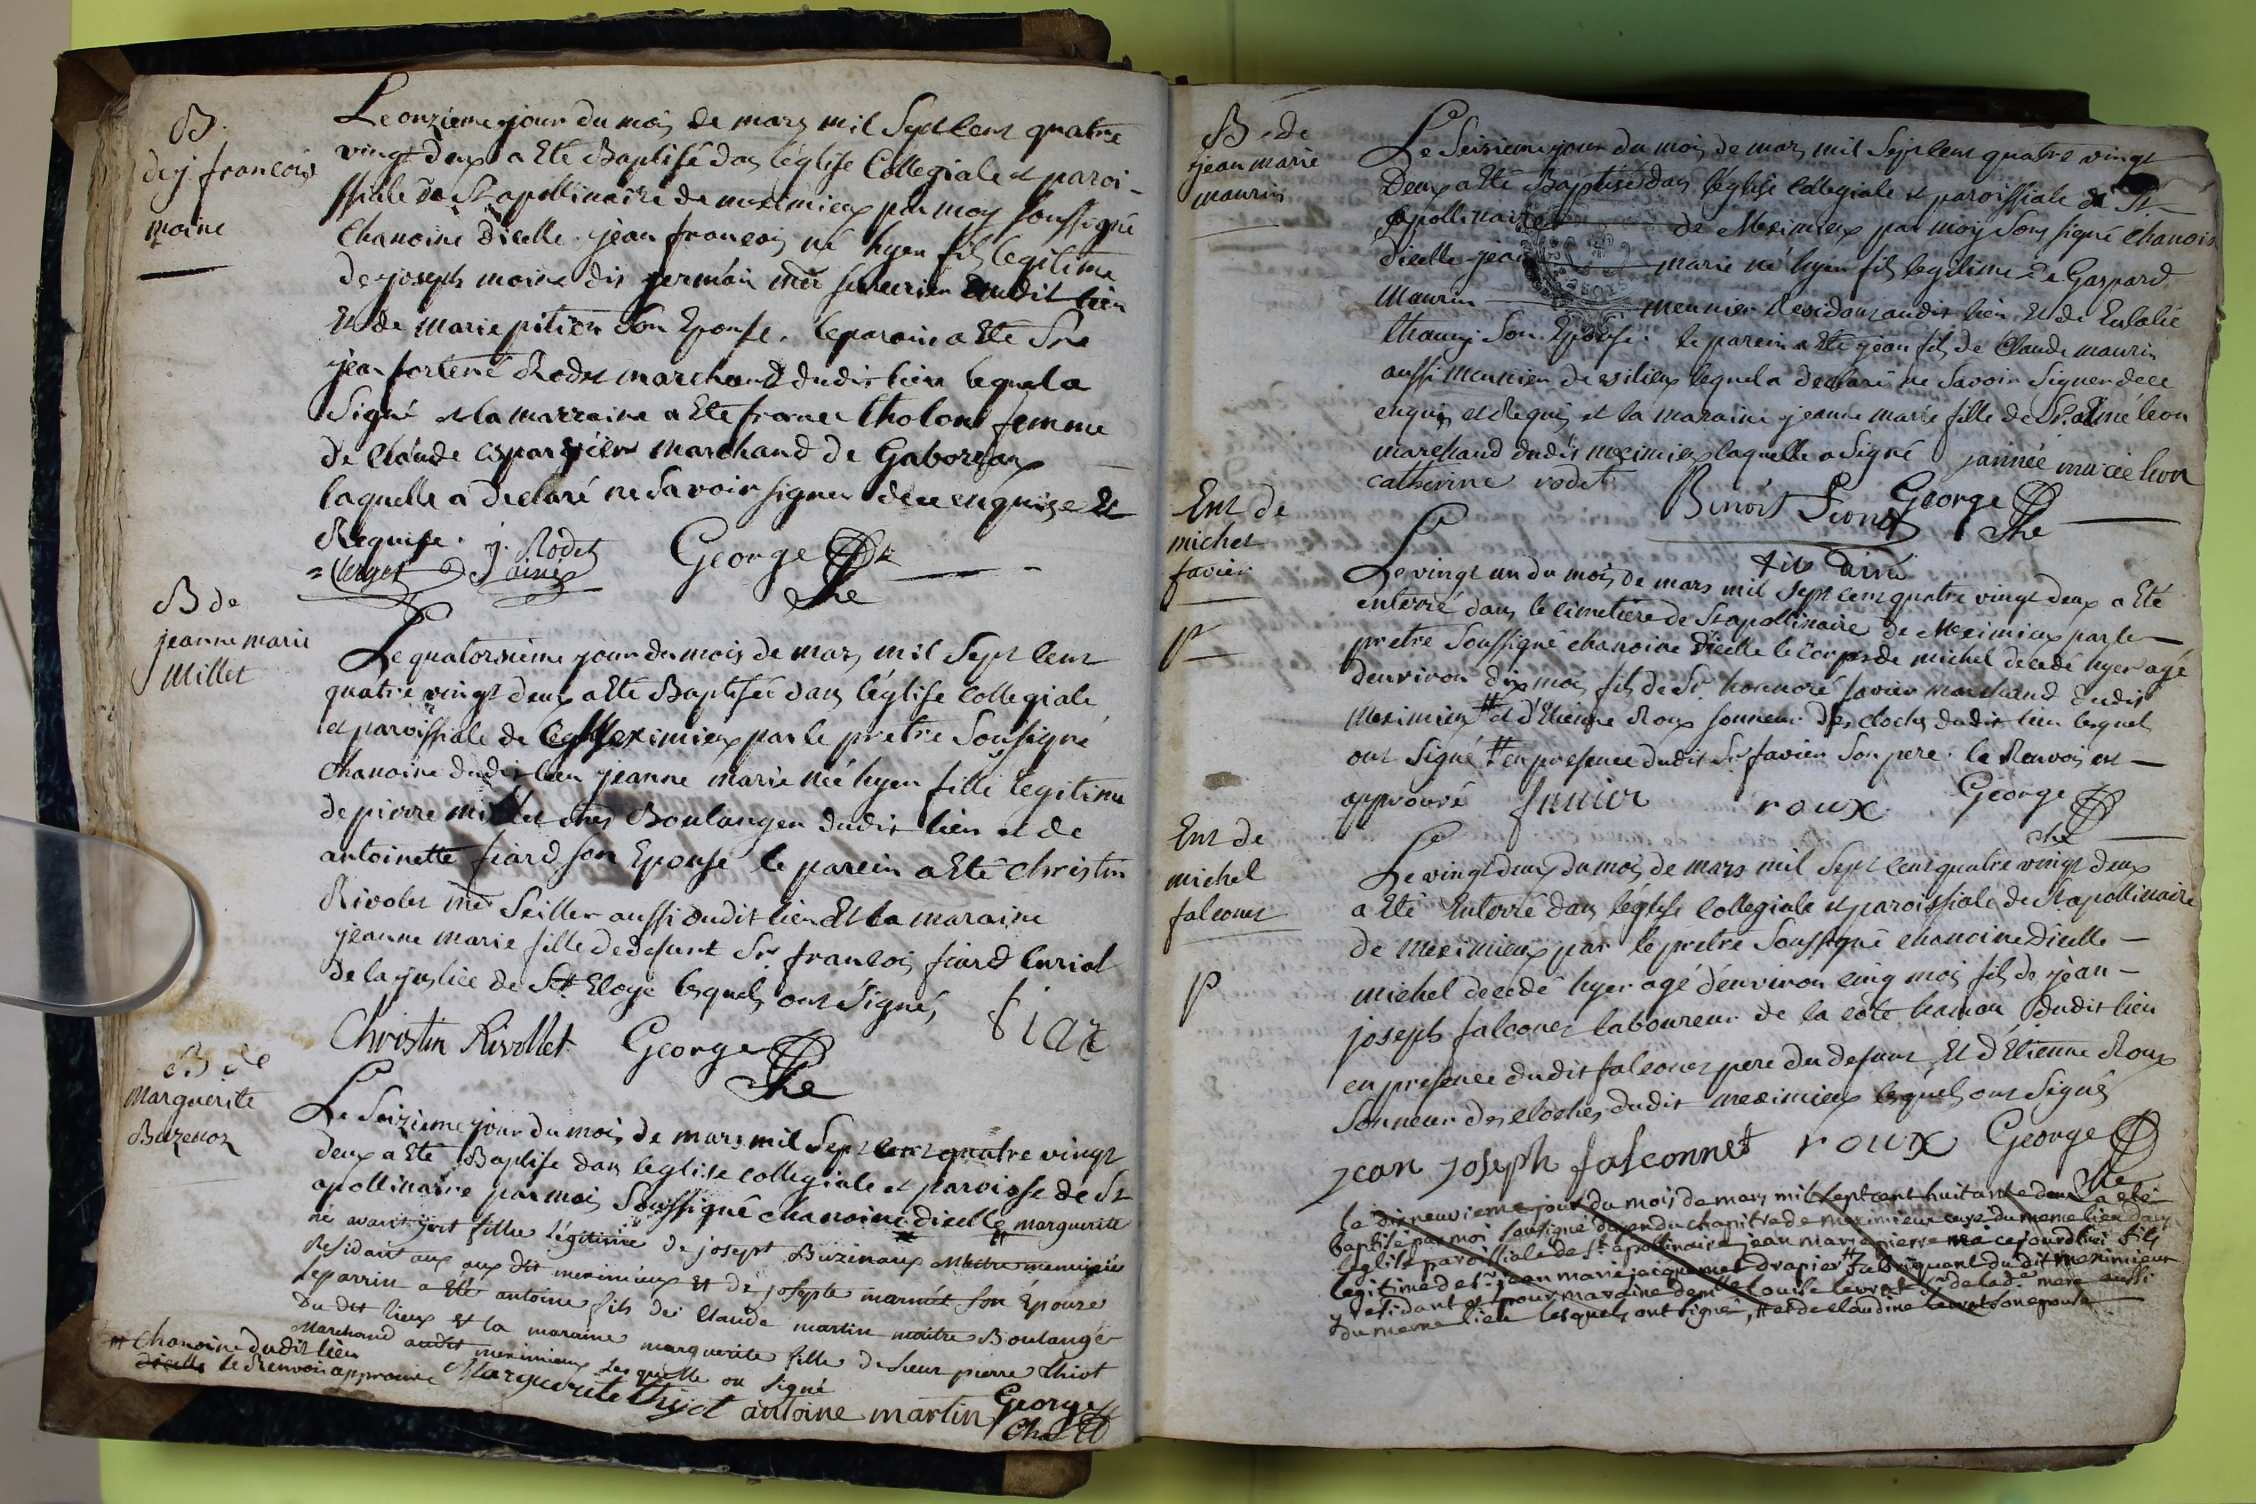 B.
de j. francois
moine
Le onzieme jour du mois de mars mil Sept Cent quatre
vingt deux a Eté Baptisé dans léglise Collegiale et paroi-
ssiale de St apollinaire de meximieux par moy soussigné
Chanoine dicelle jean francois né hyer fils legitime
de joseph moine dit germain mtre serrurier dudit lieu
Et de marie pition son Epouse. le parain a Eté Sr
jean Rodet marchand dudit lieu lequel a
Signé et la marraine a Eté france tholont femme
de claude marchand de
laquelle a declaré ne savoir signer de ce enquise Et
Requise. j. Rodet George
j ainé Che
B de
jeanne marie
Millet
Le quatorzieme jour du mois de mars mil Sept Cent
quatre vingt deux a Eté Baptisée dans léglise Collegiale
et paroissiale de Meximieux par le pretre Sousigné
chanoine dudit lieu jeanne marie née hyer fille legitime
de pierre millet mtre Boulanger dudit lieu et de
antoinette fiard son Epouse le parein a Eté christin
Rivolet mtre Seillier aussi dudit lieu Et la maraine
jeanne marie fille de defunt Sr francois fiard curial
de la justice de St Eloye lesquels ont signés,
Christin Rivollet George fiar
Che
B de
Marguerite
Buzenoz
Le Seizieme jour du mois de mars mil Sept Cent quatre vingt
deux a Eté Baptisé dans leglise collegiale et paroisse de St
apollinaire par moi Soussigné chanoine dicelle marguerite
né avant jert fillie légitime de josept Buzinaux Maitre menuisié
Residant aux dit meximieux et de josepte marmét son Épouze
le parrin a Eté antoine fils de Claude martin maitre Boulanger
du dit lieux et la maraine marguerite fille de sieur pierre thiot
Marchand audit meximieux les quelle on signé
# chanoine dudit lieu
dicelle le Renvoi approuvé Marguerite thiot antoine martin George
Cha
B de
jean marie
maurin
Le Seizieme jour du mois de mars mil Sept Cent quatre vingt
Deux a Eté Baptisé dans léglise collegiale et paroissiale de St
apollinaire de Meximieux par moy Sous signé chanoine
dicelle jean marie né hyer fils legitime De Gaspard
Maurin meunier Residant audit lieu Et de Eulalie
thauny Son Epouse. le parein a Eté jean fils de Claude maurin
aussi meunier de lequel a declaré ne Savoir Signer de ce
enquis et Requis et la maraine jeanne marie fille de Sr aimé leon
marchand dudit meximieux laquelle a Signé jannée mariée lion
catherine rodet Benoit Lions George
fils ainé Che
Ent de
michel
favier
p
Le vingt un du mois de mars mil Sept Cent quatre vingt deux a Eté
enterré dans le cimetiere de St apollinaire de Meximieux par le
pretre Soussigné chanoine dicelle le corps de michel decedé hyer agé
denviron dix mois fils de Sr honnoré favier marchand dudit
Meximieux # et d'Etienne Roux sonneur des cloches dudit lieu lesquels
ont Signé # en presence dudit Sr favier Son pere. le Renvois est
approuvé favier roux George
che
Ent de
michel
falconet
p
Le vingt deux du mois de mars mil Sept Cent quatre vingt deux
a Eté Enterré dans léglise collegiale et paroissiale de St apollinaire
de meximieux par le pretre Soussigné chanoine dicelle
michel decedé hyer agé d'environ cinq mois fils de jean
joseph falconet laboureur de la cote hanon dudit lieu
en presence dudit falconet pere du defunt Et d'Etienne Roux
Sonneur des cloches dudit meximieux lesquels ont Signés
jean joseph falconnet roux George
Che
le dixneuvieme jour du mois de mars mil sept cent huitante deux a eté
baptisé par moi sousigné doyen du chapitre de meximieux curé du meme lieu dans
leglise paroissiale de St apollinaire jean marie pierre né ce jourdhui fils
legitime de sr jean marie jaiquemet drapier # fabriquant du dit meximieux
y residant et pour maraine demlle louise levrat sr de la de mere aussi
du meme lieu lesquels ont signé, # et de claudine levrat son epouse